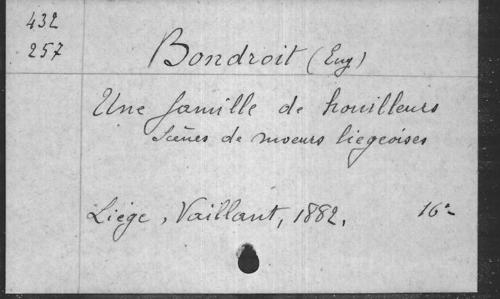 432
257
Bondroit (Eug)
Une famille de houilleurs
Scènes de moeurs liegeoises
Liége, Vaillant, 1882. 16°